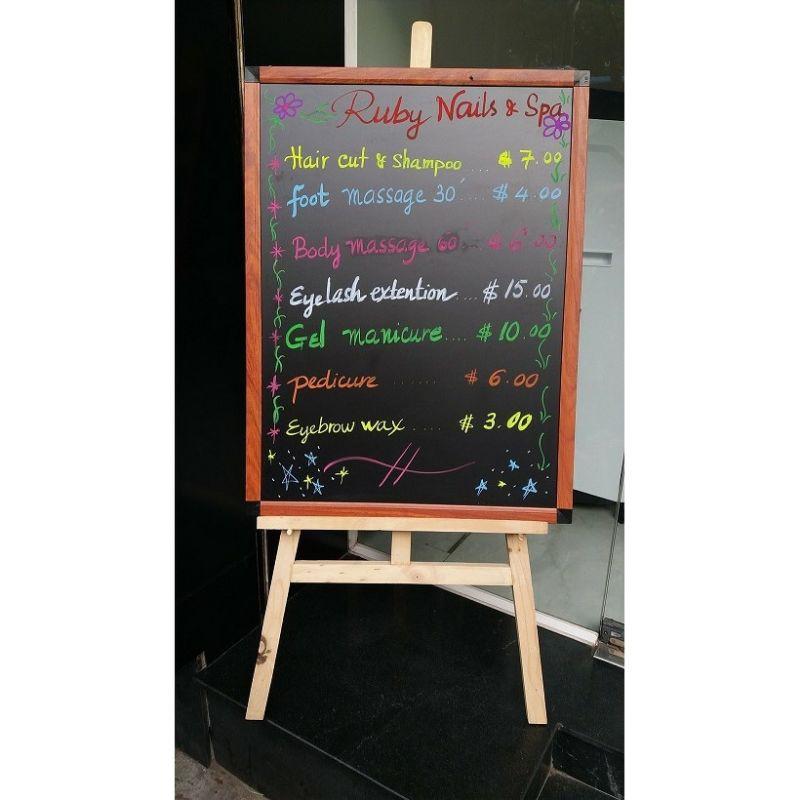 Ruby Nails & Spa
Hair cut & Shampoo .... $ 7.00
foot massage 30' .... $ 4.00
Body massage 60' ... $ 6.00
Eyelash extention .... $ 15.00
Gel manicure .... $ 10.00
pedicure ...... $ 6.00
Eyebrow wax .... $ 3.00